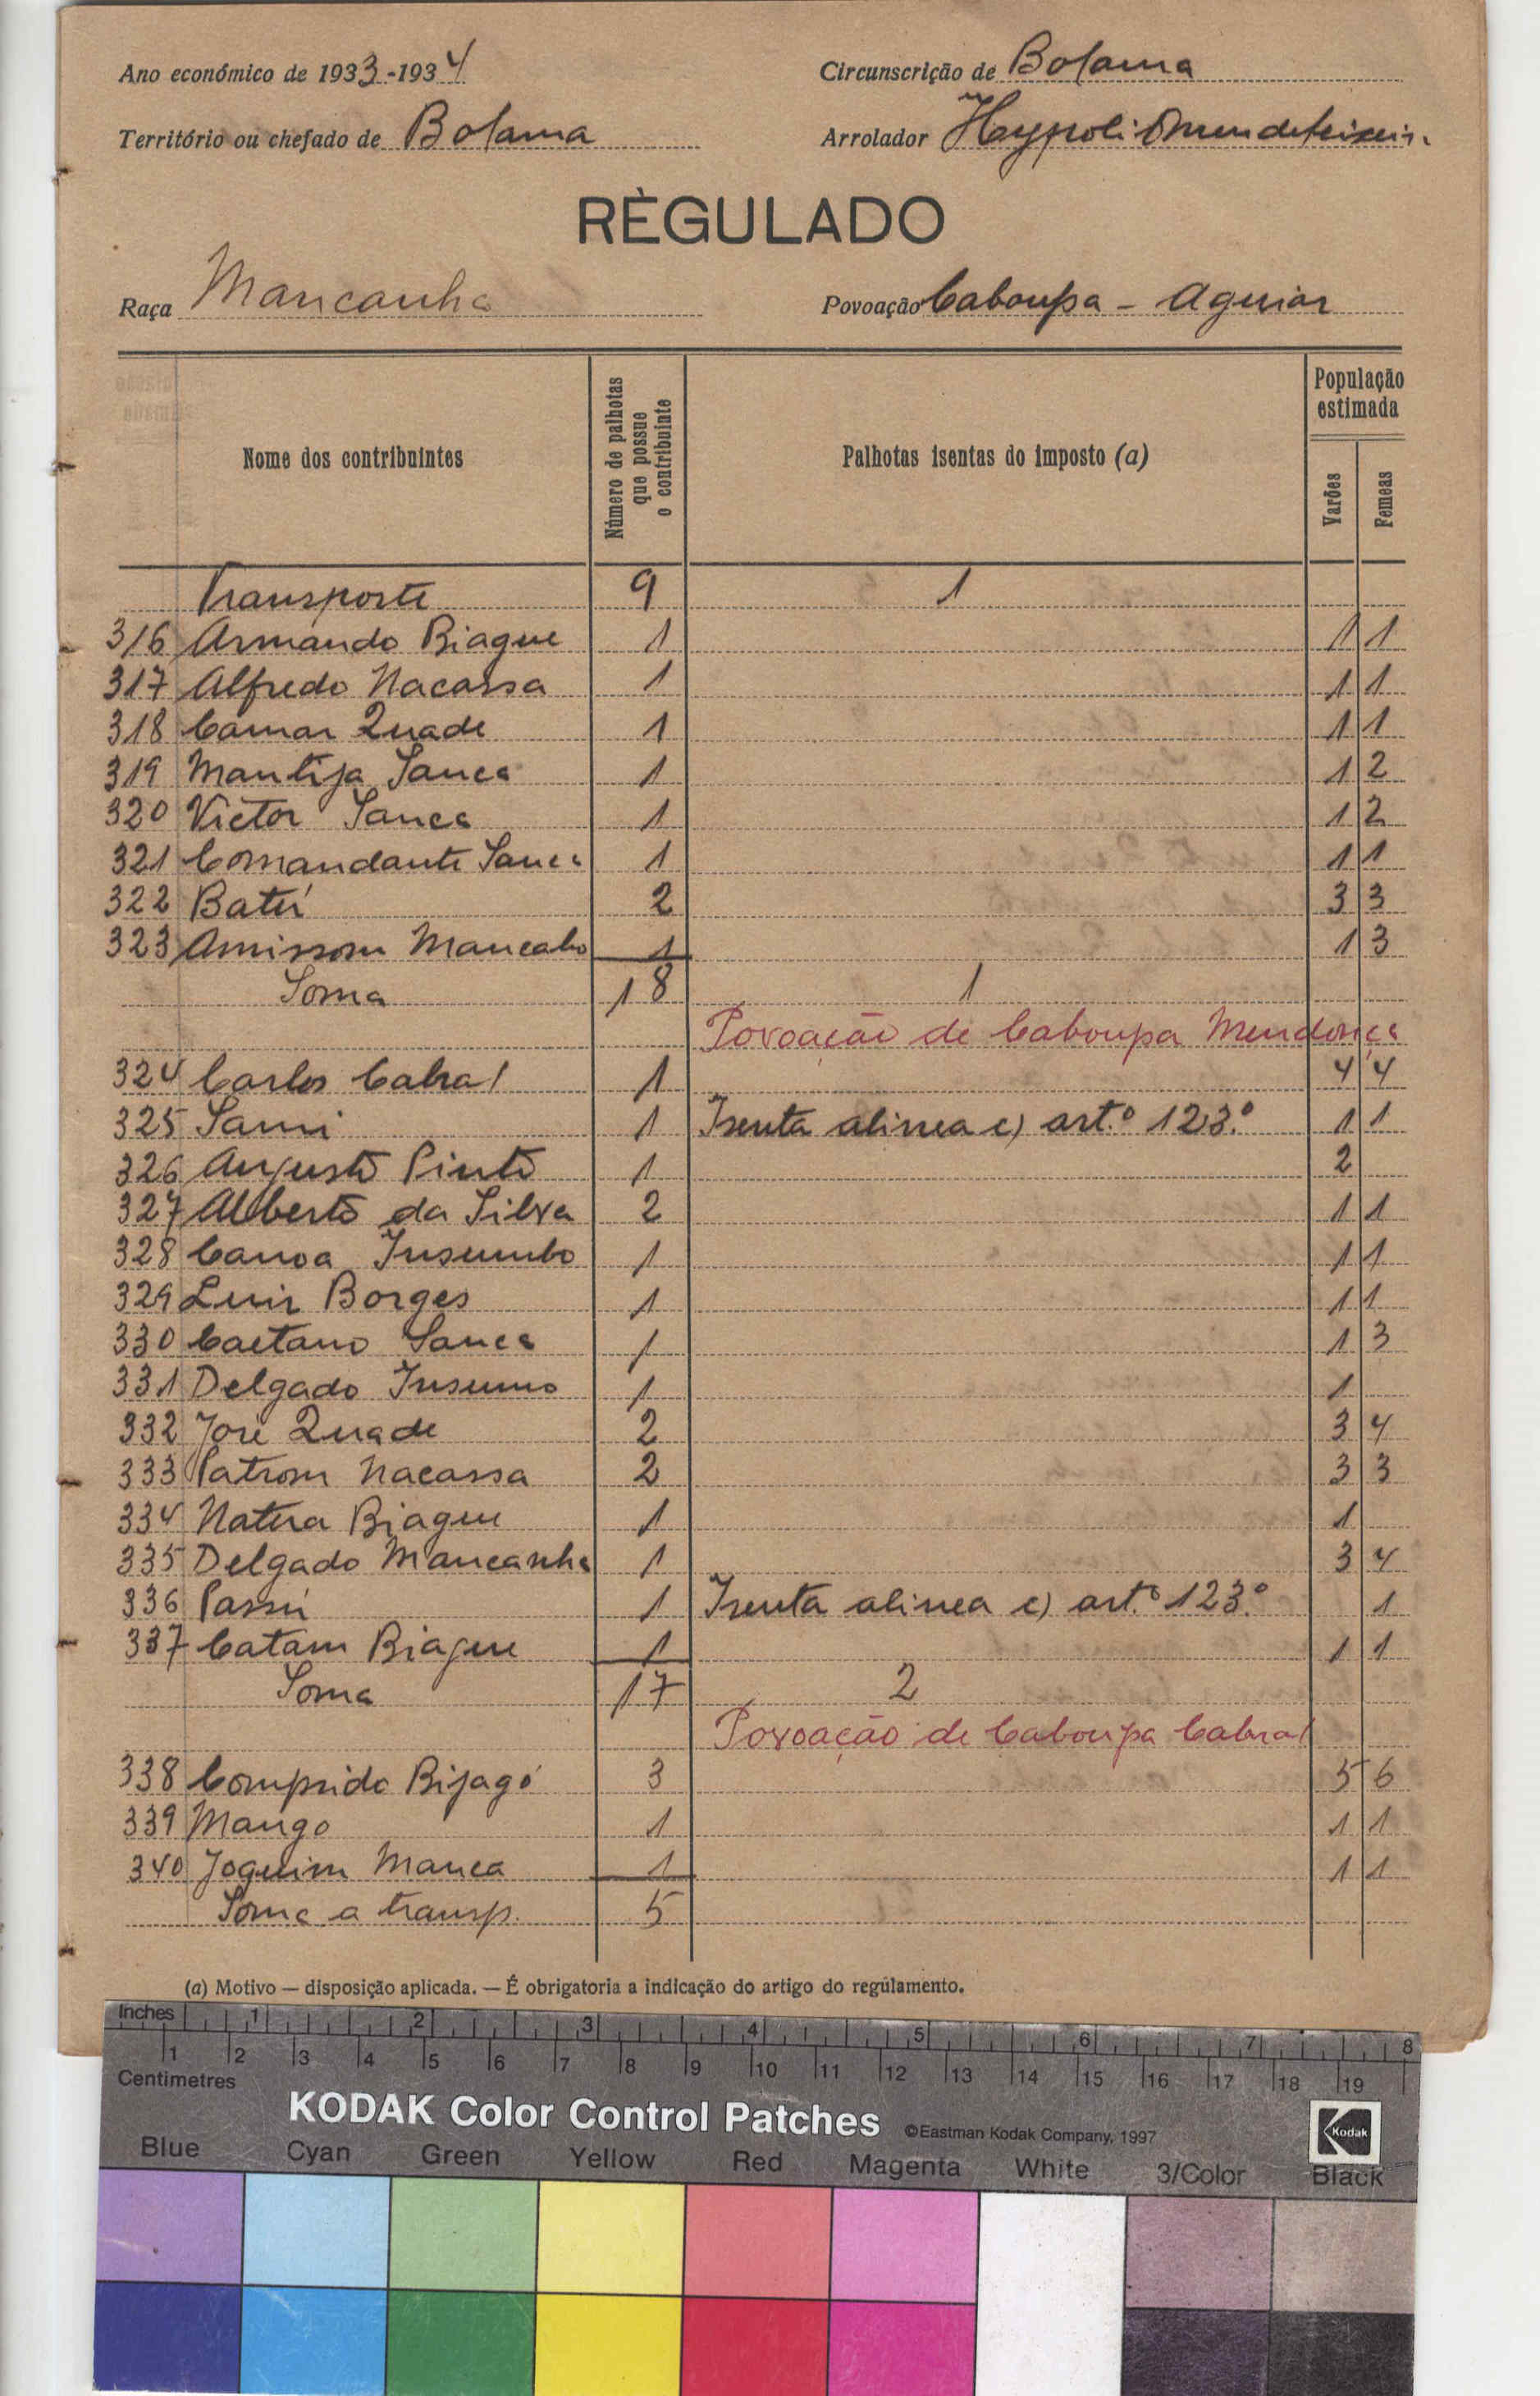 Ano económico de 1933-1934
Circunscrição de Bolama
Território ou chefado de Bolama
Arrolador Heypoli
RÈGULADO
Raça Mancanha
Povoação Caboupa - Aguiar
Nome dos contribuintes
Número de palhotas que possue o contribuinte
Palhotas isentas do imposto (a)
População estimada
Varões
Femeas
Transporte 9 1
316 Armando Biague 1 1 1
317 Alfredo Nacassa 1 1 1
318 Camar Quade 1 1 1
319 Mantija Sanca 1 1 2
320 Victor Sanca 1 1 2
321 Comandante Sanca 1 1 1
322 Batú 2 3 3
323 Amissom Mancabo 1 1 3
Soma 18 1
Povoação de Caboupa Mendonça
324 Carlos Cabral 1 4 4
325 Sami 1 Isenta alinea c) art.º 123.º 1 1
326 Augusto Pinto 1 2
327 Alberto da Silva 2 1 1
328 Canoa Insumbo 1 1 1
329 Luis Borges 1 1 1
330 Caetano Sanca 1 1 3
331 Delgado Insumo 1 1
332 José Quade 2 3 4
333 Patrom Nacassa 2 3 3
334 Natura Biague 1 1
335 Delgado Mancanha 1 3 4
336 Passú 1 Isenta alinea c) art.º 123.º 1
337 Catam Biague 1 1 1
Soma 17 2
Povoação de Caboupa Cabral
338 Comprido Bijagó 3 5 6
339 Mango 1 1 1
340 Joquim Manca 1 1 1
Soma a transp. 5
(a) Motivo — disposição aplicada. — É obrigatoria a indicação do artigo do regúlamento.
Inches 1 2 3 4 5 6 7 8
1 2 3 4 5 6 7 8 9 10 11 12 13 14 15 16 17 18 19
Centimetres
KODAK Color Control Patches ©Eastman Kodak Company, 1997 Kodak
Blue Cyan Green Yellow Red Magenta White 3/Color Black